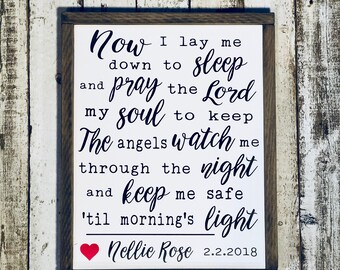 Now I lay me
down to sleep
and pray the Lord
my soul to keep
The angels watch me
through the night
and keep me safe
'til morning's light
Nellie Rose 2.2.2018